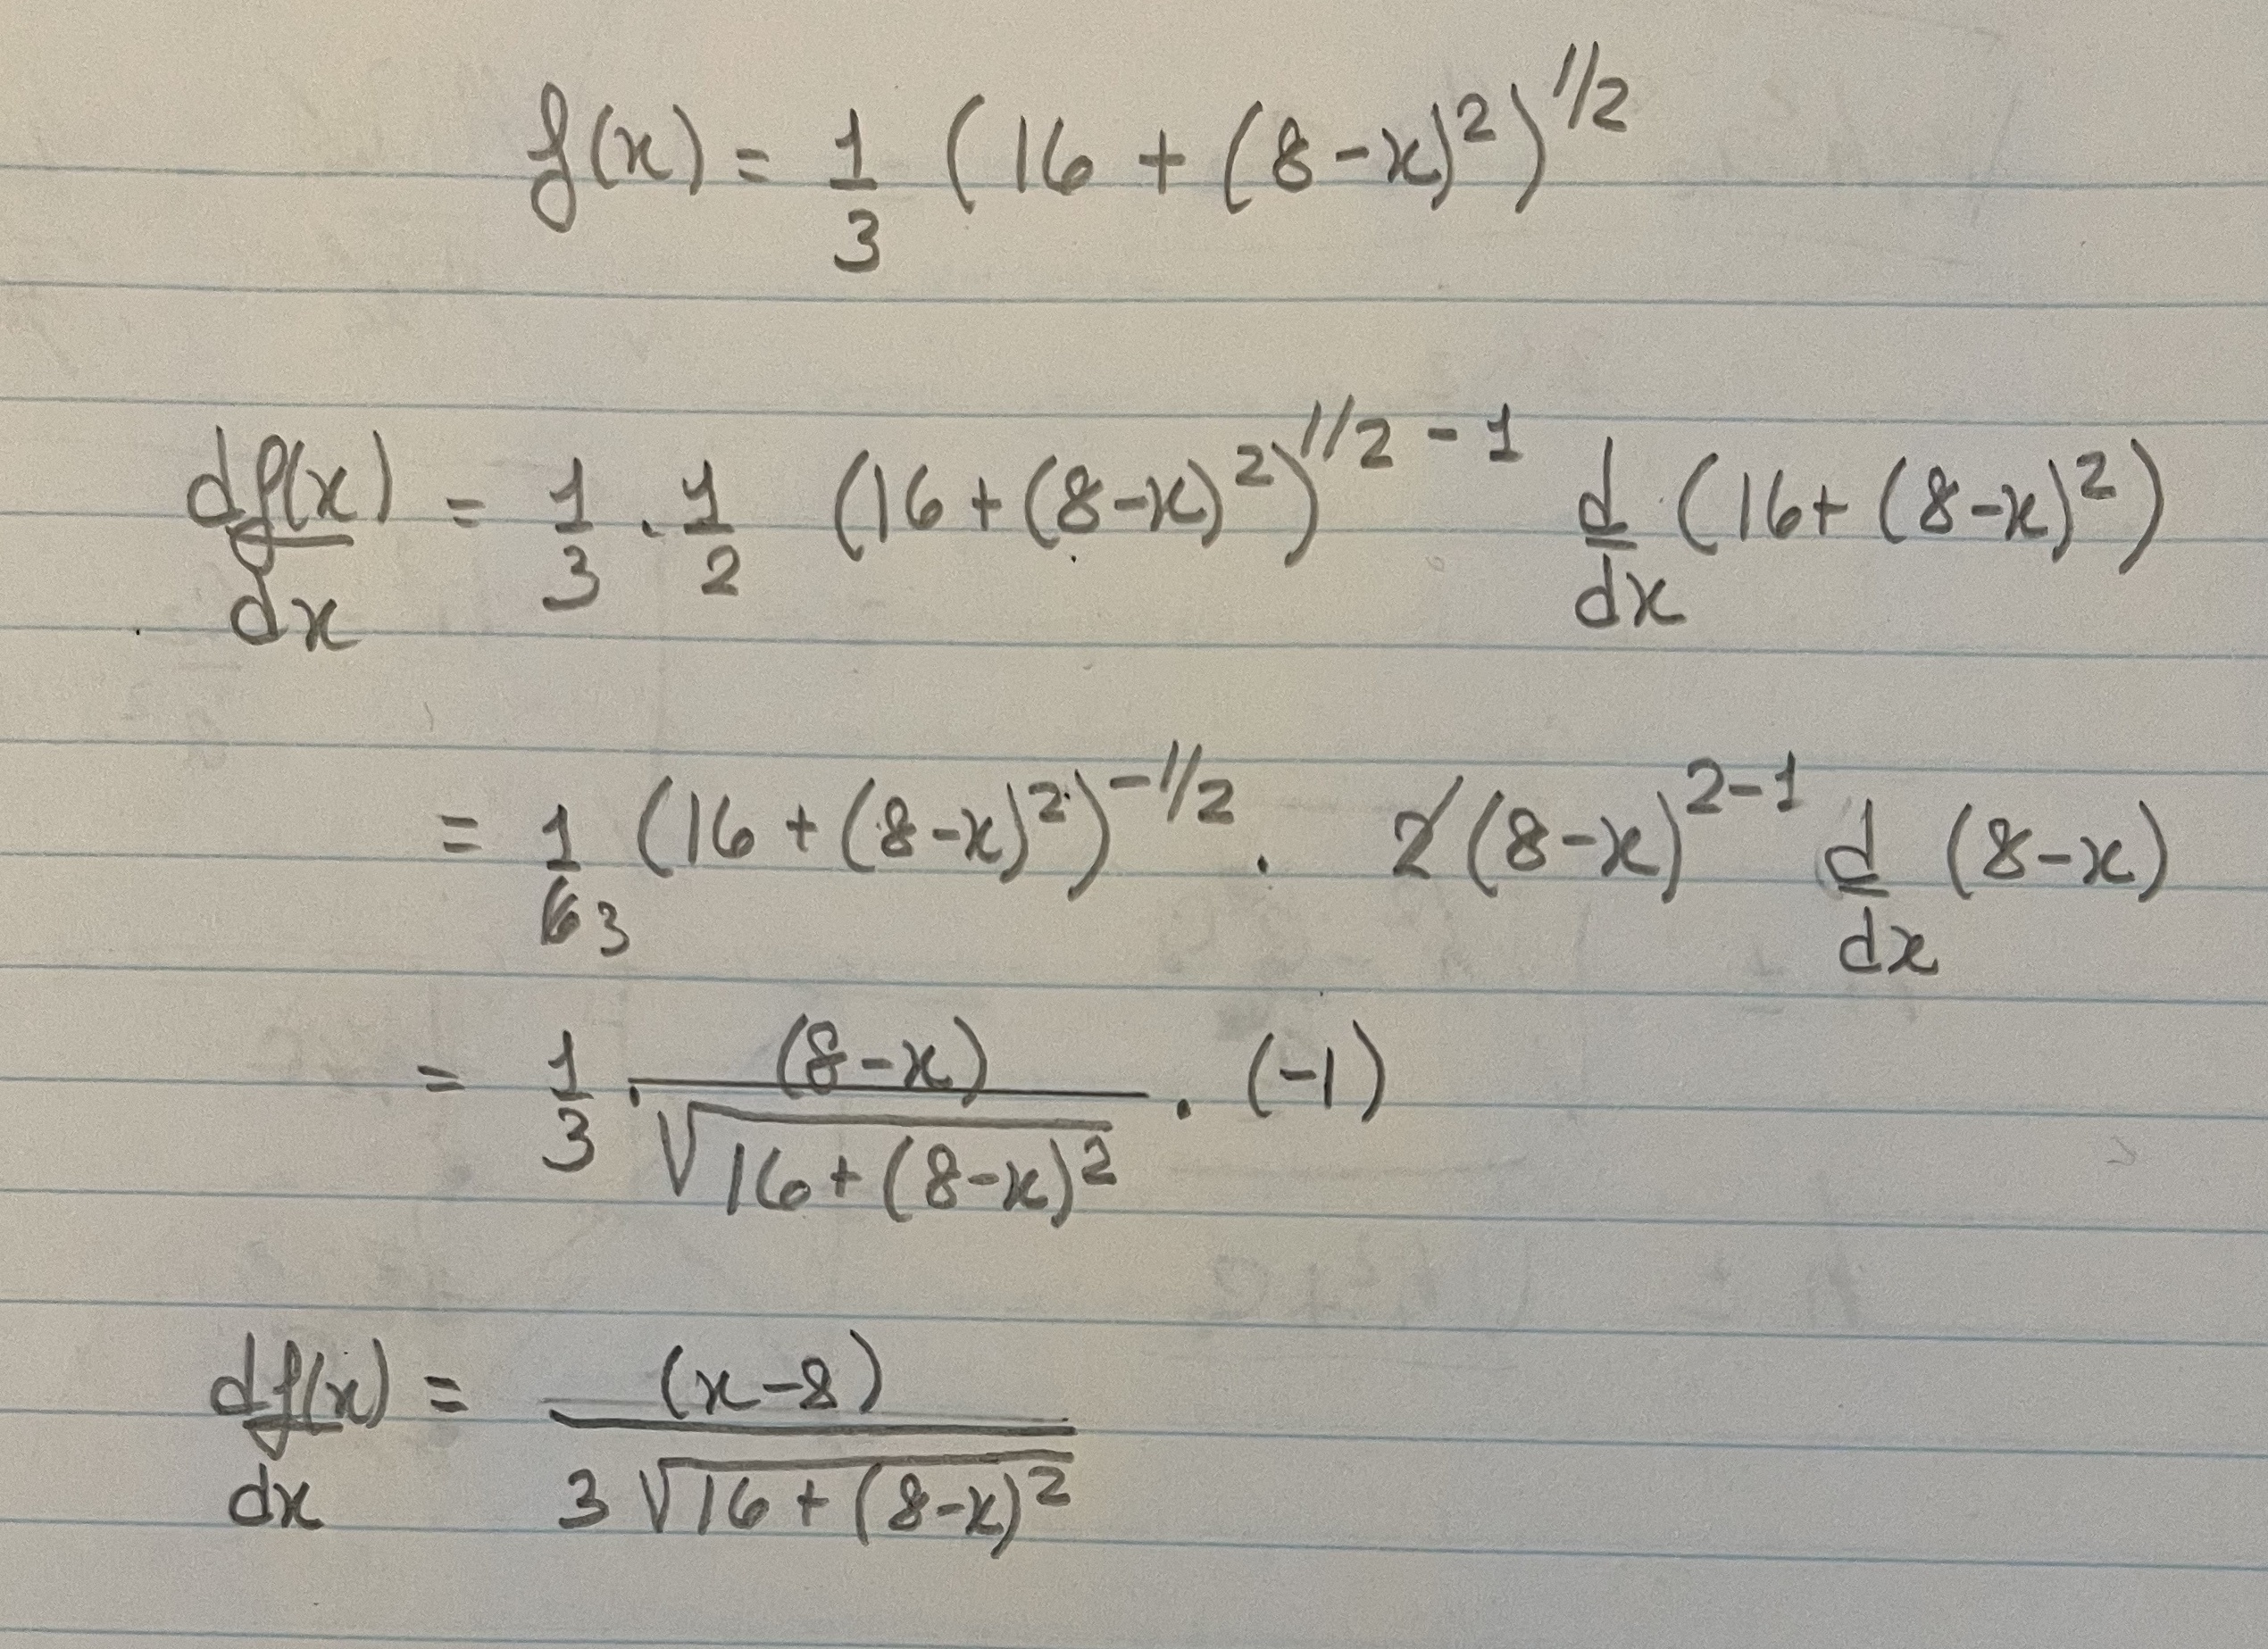 f(x) = 1/3 (16 + (8-x)²)^1/2
df(x)/dx = 1/3 . 1/2 (16 + (8-x)²)^1/2 - 1 d/dx (16 + (8-x)²)
= 1/6 3 (16 + (8-x)²)^-1/2 . 2(8-x)^2-1 d/dx (8-x)
= 1/3 . (8-x)/√16 + (8-x)² . (-1)
df(x)/dx = (x-8)/3 √16 + (8-x)²